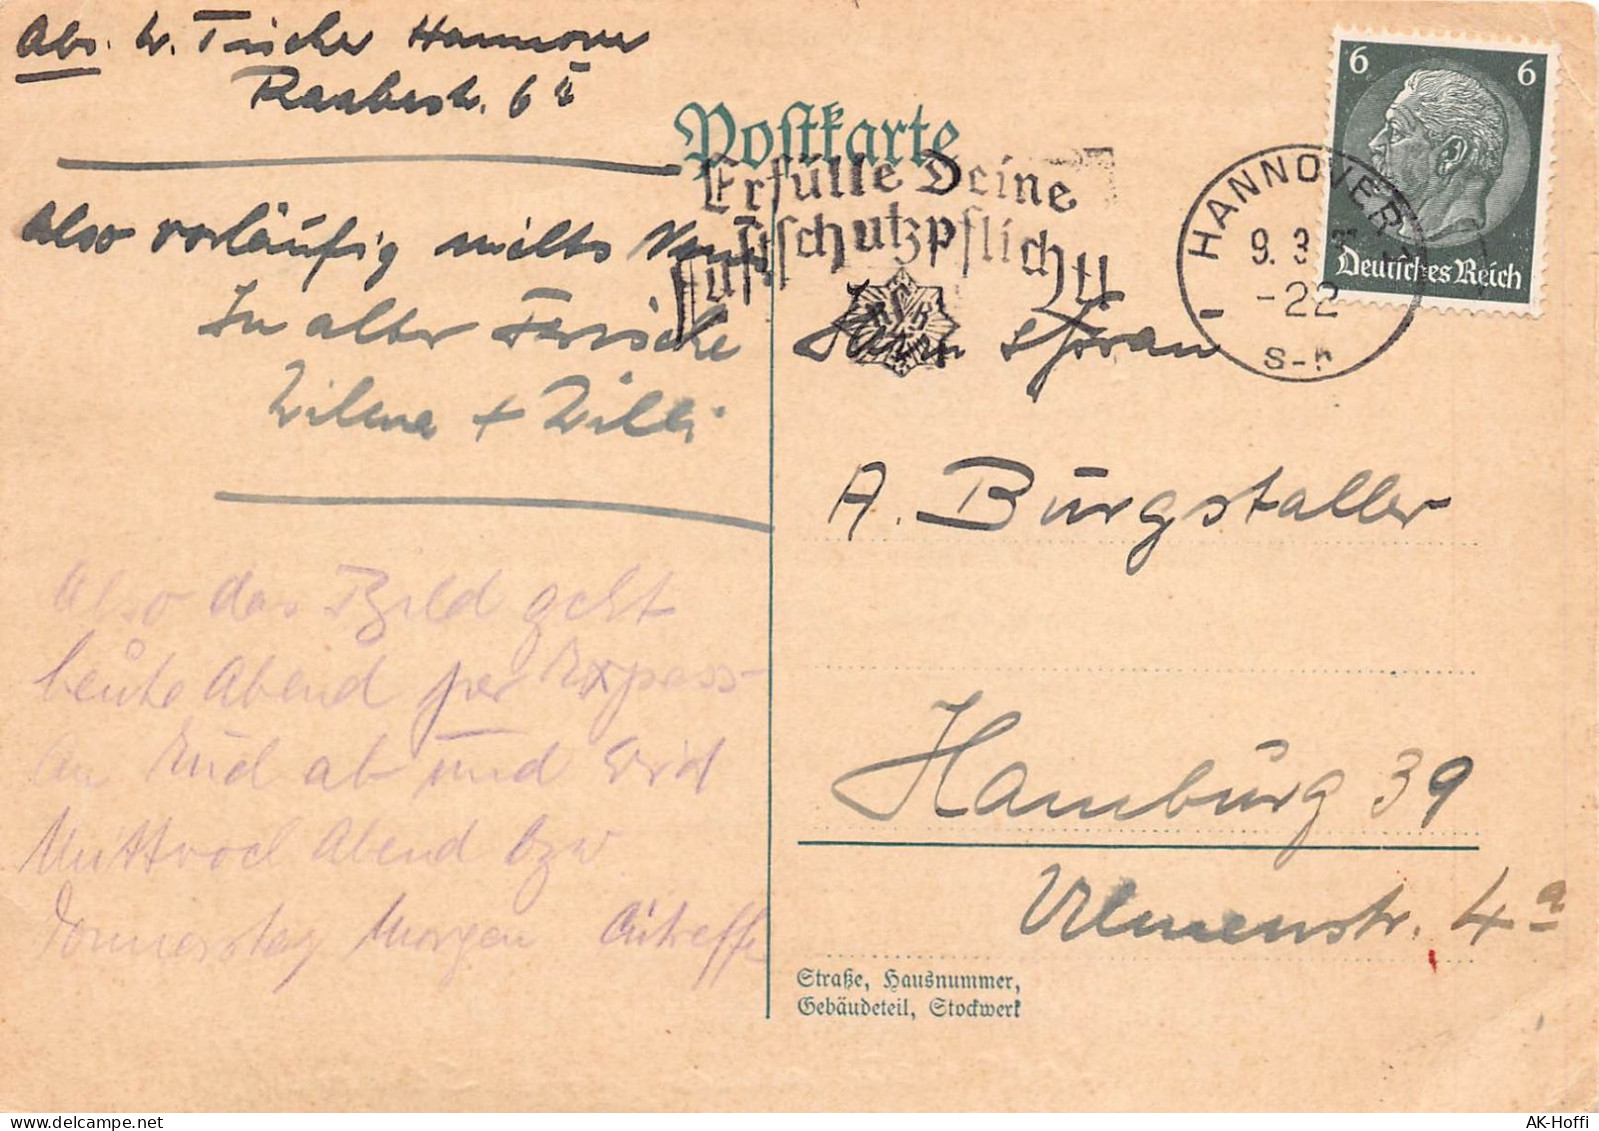 Abs. W. Tischer Hannover
Raabestr. 6 II
Postkarte
Erfülle Deine
Luftschutzpflicht!
HANNOVER
9. 3.
-22
S-h
6 6
Deutsches Reich
Also vorläufig nichts Neues
In alter Frische
Wilma + Willi
Herrn & Frau
A. Burgstaller
Hamburg 39
Ulmenstr. 4a
Also das Bild geht
heute Abend per Express-
an Euch ab und wird
Mittwoch Abend bzw
Donnerstag Morgen
Straße, Hausnummer,
Gebäudeteil, Stockwerk
AK-Hoffi